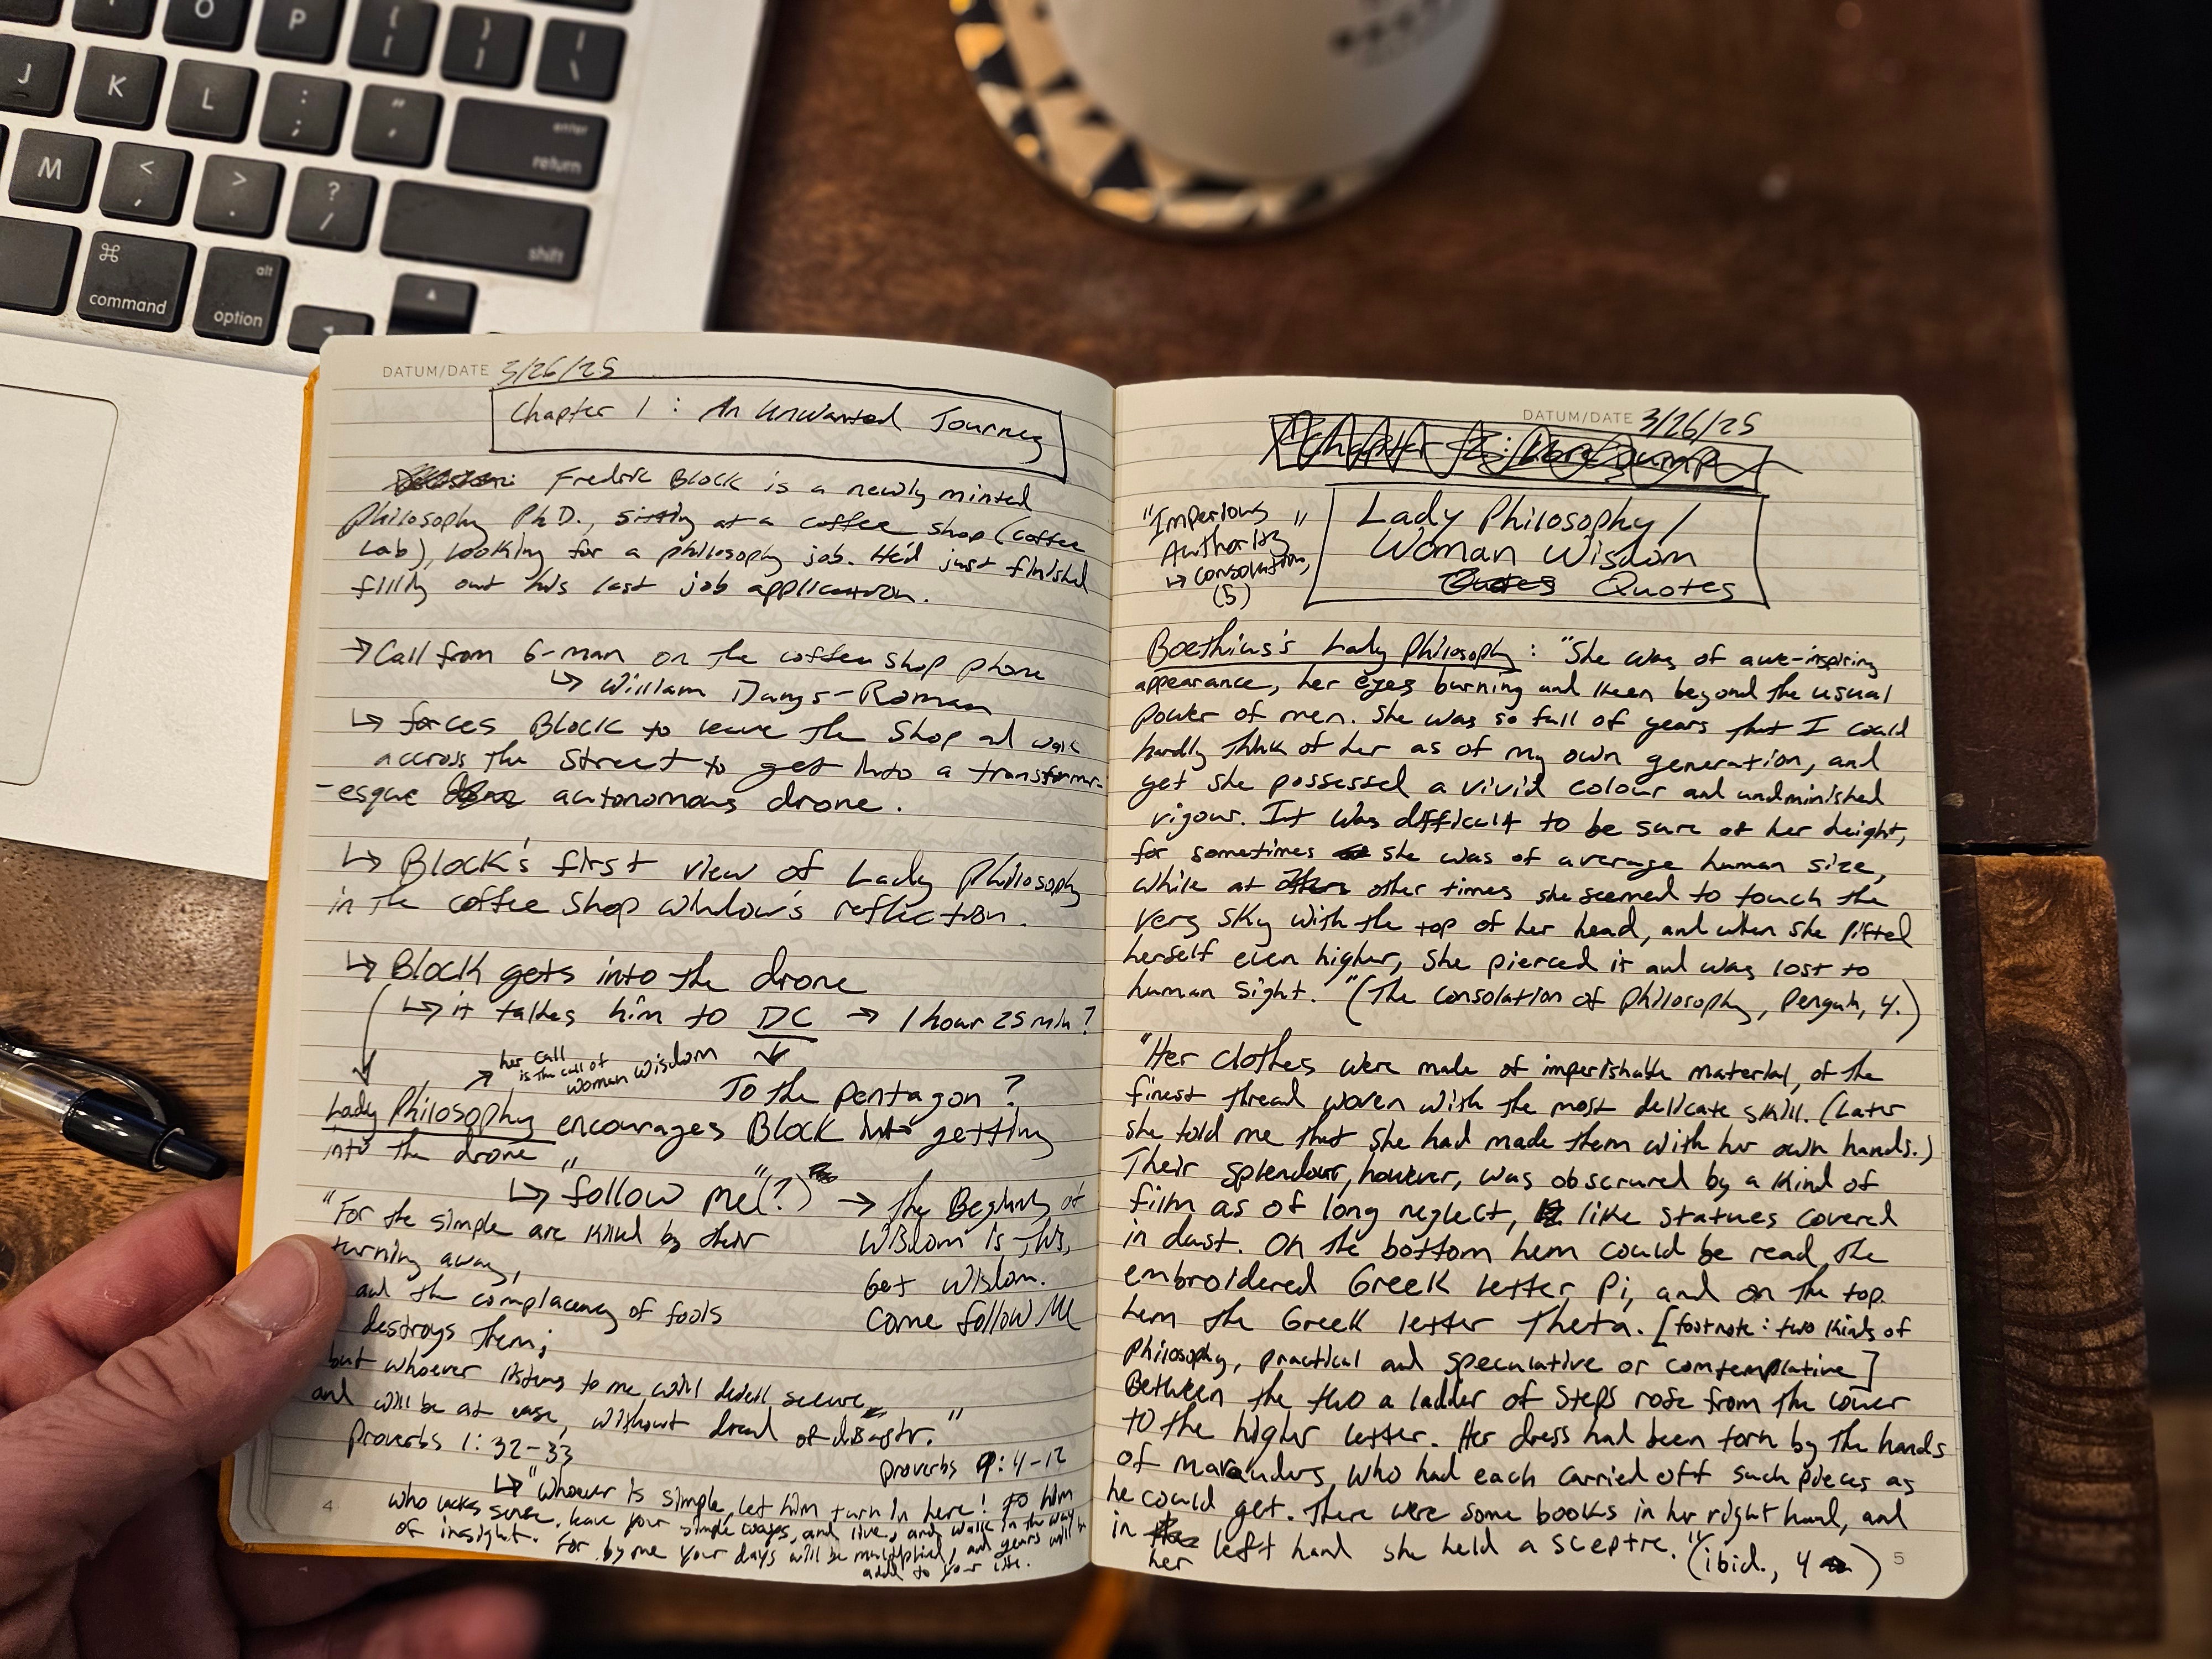 O
P
{
[
}
]
|
\
J
K
L
:
;
"
'
enter
return
M
<
,
>
.
?
/
shift
⌘
command
alt
option
DATUM/DATE 3/26/25
Chapter 1: An Unwanted Journey
Fredric Block is a newly minted
Philosophy Ph.D., sitting at a coffee shop (Coffee
Lab), looking for a philosophy job. He'd just finished
filling out his last job application.
→ Call from G-man on the coffee shop phone
↳ William Dangs-Roman
↳ forces Block to leave the shop and walk
accross the street to get into a transformer-
-esque autonomous drone.
↳ Block's first view of Lady Philosophy
in the coffee shop window's reflection.
↳ Block gets into the drone
↳ it takes him to DC → 1 hour 25 min?
her call
is the call of
Woman Wisdom
To the pentagon?
Lady Philosophy encourages Block into getting
into the drone
↳ "follow me"(?) → the Beginning of
Wisdom is this,
Get wisdom.
Come follow Me
"For the simple are killed by their
turning away,
and the complacency of fools
destroys them;
but whoever listens to me will dwell secure
and will be at ease, without dread of disaster."
Proverbs 1:32-33
Proverbs 9:4-12
↳ "Whoever is simple, let him turn in here! To him
who lacks sense, leave your simple ways, and live, and walk in the way
of insight. For by me your days will be multiplied, and years will be
added to your life.
4
DATUM/DATE 3/26/25
"Imperious
Authority"
↳ Consolation,
(5)
Lady Philosophy/
Woman Wisdom
Quotes Quotes
Boethius's Lady Philosophy: "She was of awe-inspiring
appearance, her eyes burning and keen beyond the usual
power of men. She was so full of years that I could
hardly think of her as of my own generation, and
yet she possessed a vivid colour and undminished
vigour. It was difficult to be sure of her height,
for sometimes she was of average human size,
while at others other times she seemed to touch the
very sky with the top of her head, and when she lifted
herself even higher, she pierced it and was lost to
human sight." (The Consolation of Philosophy, Penguin, 4.)
"Her clothes were made of imperishable material, of the
finest thread woven with the most delicate skill. (Later
she told me that she had made them with her own hands.)
Their splendour, however, was obscured by a kind of
film as of long neglect, like statues covered
in dust. On the bottom hem could be read the
embroidered Greek letter Pi, and on the top
hem the Greek letter Theta. [footnote: two kinds of
philosophy, practical and speculative or comtemplative]
Between the two a ladder of steps rose from the lower
to the higher letter. Her dress had been torn by the hands
of marauders who had each carried off such pieces as
he could get. There were some books in her right hand, and
in her left hand she held a sceptre." (ibid., 4)
5